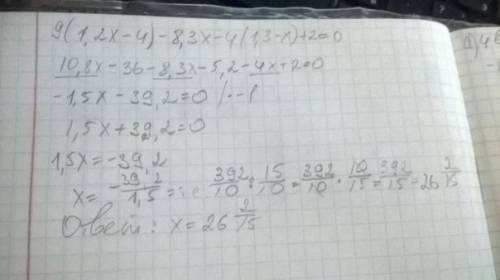 9(1,2x-4)-8,3x-4(1,3-x)+2=0
10,8x-36-8,3x-5,2-4x+2=0
-1,5x-39,2=0 /·-1
1,5x+39,2=0
1,5x=-39,2
x= -39,2/1,5 = 392/10 : 15/10 = 392/10 · 10/15 = 392/15 = 26 2/15
Ответ: x=26 2/15